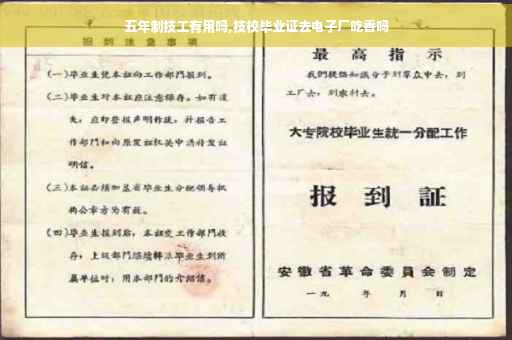 五年制技工有用吗,技校毕业证去电子厂吃香吗
报到注意事项
(一)毕业生凭本证向工作部门报到。
(二)毕业生对本证应注意保存。如有遗
失,应即登报声明作废,并报告工
作部门和向原发证机关申请补发证
明信。
(三)本证必须加盖省毕业生分配领导机
构公章方为有效。
(四)毕业生报到后,本证交工作部门收
存;上级部门继续转派毕业生到所
属单位时,用本部门的介绍信。
最高指示
我们提倡知识分子到群众中去,到
工厂去,到农村去。
大专院校毕业生統一分配工作
报到証
安徽省革命委員会制定
一九 年 月 日